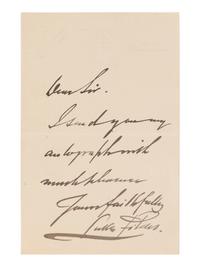 Dear Sir.
I send you my
autograph with
much pleasure
Yours faithfully
Luke Fildes.